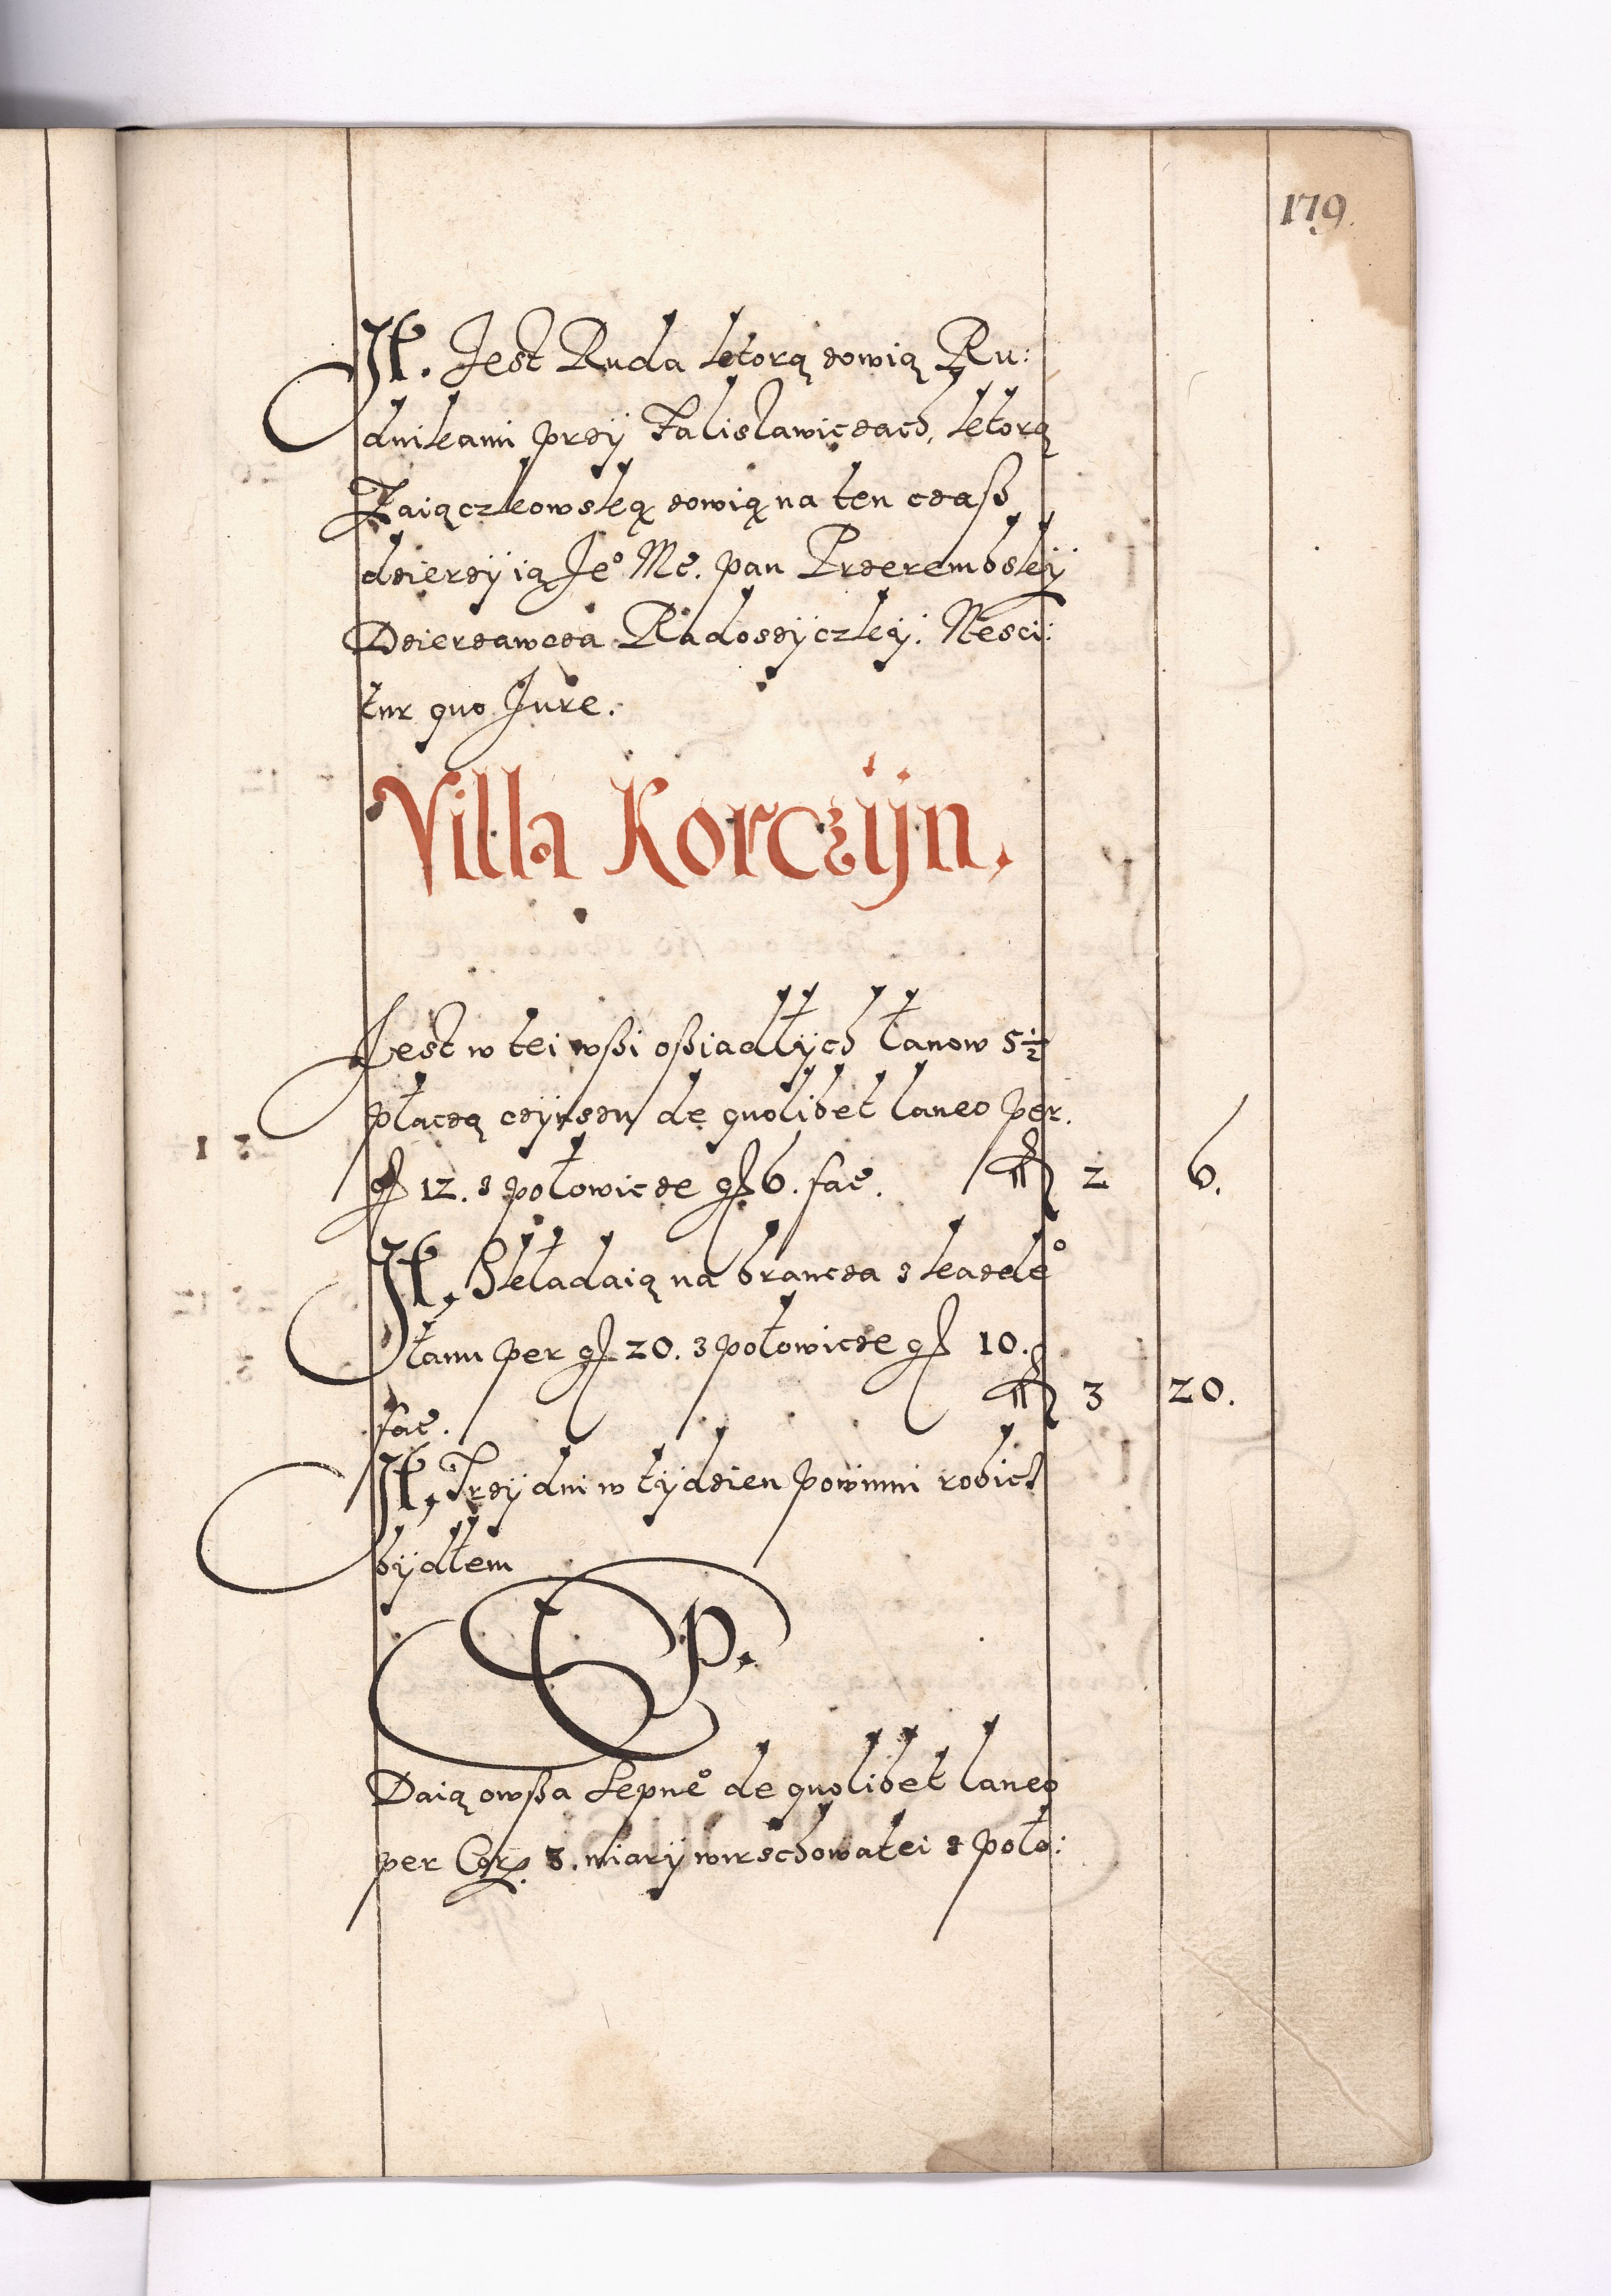 179.
It. Jest Ruda ktorą zowią Ru:
dnikami przÿ Falisławiczach, ktorą
Zaiączkowską zowią na ten czaß
dzierzÿ ią Je° Mć. pan Przerembskÿ
Dzierzawcza Radoszÿczkÿ. Nesci:
tur quo Jure.
Villa Korczÿn.
Jest w tei wßi oßiadłÿch łanow 5½
płaczą czÿnszu de quolibet laneo per.
gſ 12. z połowicze gſ 6. fac. fl 2 6.
It. Składaią na brancza z kazde°
łanu per gſ 20. z połowicze gſ 10.
fac. fl 3 20.
It. Trzÿ dni w tÿdzien powinni robicz
bÿdłem
P.
Daią owßa sepne° de quolibet laneo
per Cor. 3. miarÿ wirzchowatei z poło: